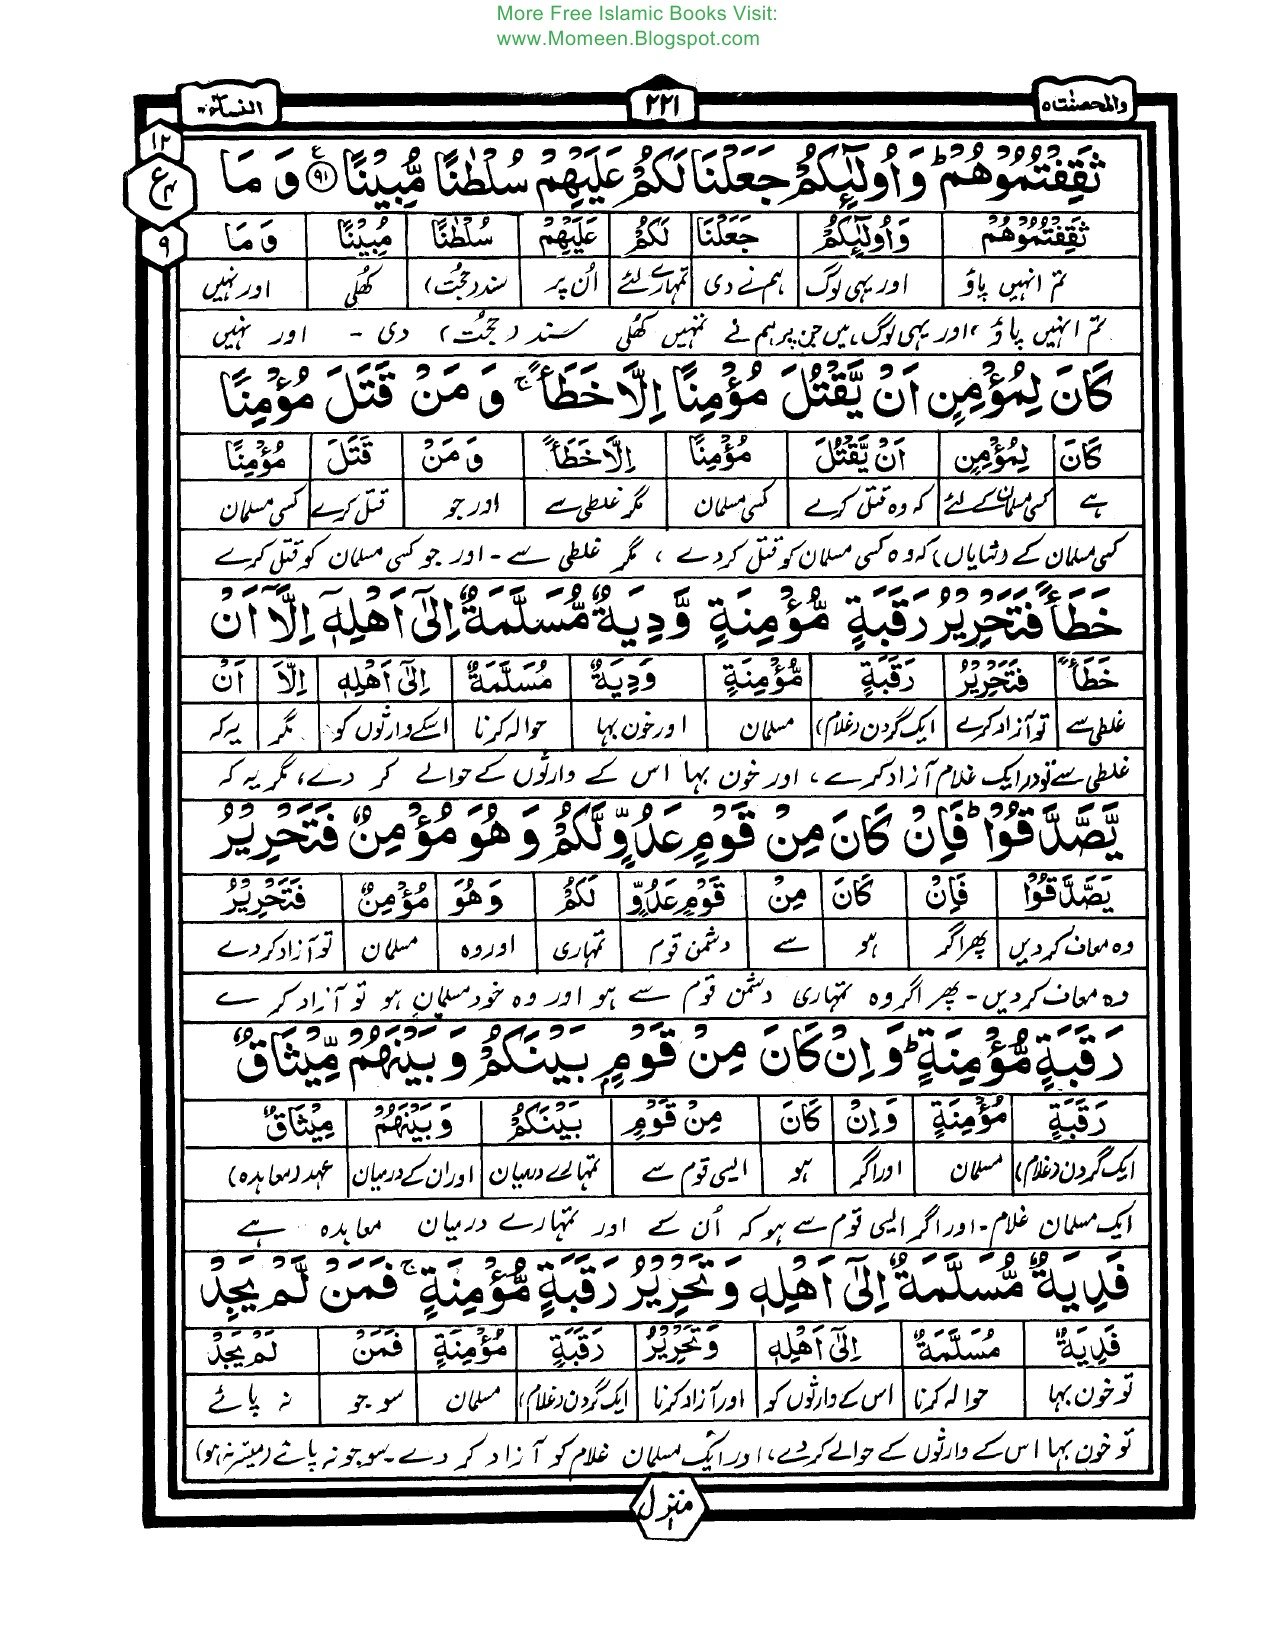 More Free Islamic Books Visit:
www.Momeen.Blogspot.com
والمحصنٰت ۵ ۲۲۱ النسآء ۴
۱۲
ع
۴
۹
ثَقِفْتُمُوْهُمْ ؕ وَ اُولٰٓئِكُمْ جَعَلْنَا لَكُمْ عَلَیْهِمْ سُلْطٰنًا مُّبِیْنًا ﴿۹۱﴾ ع وَ مَا
ثَقِفْتُمُوْهُمْ وَاُولٰٓئِكُمْ جَعَلْنَا لَكُمْ عَلَیْهِمْ سُلْطٰنًا مُبِیْنًا وَ مَا
تم انہیں پاؤ اور یہی لوگ ہم نے دی تمہارے لئے اُن پر سند (حجت) کھُلی اور نہیں
تم انہیں پاؤ، اور یہی لوگ ہیں جن پر ہم نے تمہیں کھُلی سند (حجت) دی - اور نہیں
كَانَ لِمُؤْمِنٍ اَنْ یَّقْتُلَ مُؤْمِنًا اِلَّا خَطَـًٔا ۚ وَ مَنْ قَتَلَ مُؤْمِنًا
كَانَ لِمُؤْمِنٍ اَنْ یَّقْتُلَ مُؤْمِنًا اِلَّا خَطَـًٔا وَ مَنْ قَتَلَ مُؤْمِنًا
ہے کسی مسلمان کے لئے کہ وہ قتل کرے کسی مسلمان مگر غلطی سے اور جو قتل کرے کسی مسلمان
کسی مسلمان کے (شایاں) کہ وہ کسی مسلمان کو قتل کر دے ، مگر غلطی سے - اور جو کسی مسلمان کو قتل کرے
خَطَـًٔا فَتَحْرِیْرُ رَقَبَةٍ مُّؤْمِنَةٍ وَّ دِیَةٌ مُّسَلَّمَةٌ اِلٰۤى اَهْلِهٖۤ اِلَّاۤ اَنْ
خَطَـًٔا فَتَحْرِیْرُ رَقَبَةٍ مُّؤْمِنَةٍ وَدِیَةٌ مُسَلَّمَةٌ اِلٰۤى اَهْلِهٖ اِلَّا اَنْ
غلطی سے تو آزاد کرے ایک گردن (غلام) مسلمان اور خون بہا حوالہ کرنا اسکے وارثوں کو مگر یہ کہ
غلطی سے تو وہ ایک غلام آزاد کرے ، اور خون بہا اس کے وارثوں کے حوالے کر دے، مگر یہ کہ
یَّصَّدَّقُوْا ؕ فَاِنْ كَانَ مِنْ قَوْمٍ عَدُوٍّ لَّكُمْ وَ هُوَ مُؤْمِنٌ فَتَحْرِیْرُ
یَصَّدَّقُوْا فَاِنْ كَانَ مِنْ قَوْمٍ عَدُوٍّ لَكُمْ وَهُوَ مُؤْمِنٌ فَتَحْرِیْرُ
وہ معاف کر دیں پھر اگر ہو سے دشمن قوم تمہاری اور وہ مسلمان تو آزاد کر دے
وہ معاف کر دیں - پھر اگر وہ تمہاری دشمن قوم سے ہو اور وہ خود مسلمان ہو تو آزاد کرے
رَقَبَةٍ مُّؤْمِنَةٍ ؕ وَ اِنْ كَانَ مِنْ قَوْمٍۭ بَیْنَكُمْ وَ بَیْنَهُمْ مِّیْثَاقٌ
رَقَبَةٍ مُؤْمِنَةٍ وَ اِنْ كَانَ مِنْ قَوْمٍ بَیْنَكُمْ وَبَیْنَهُمْ مِیْثَاقٌ
ایک گردن (غلام) مسلمان اور اگر ہو ایسی قوم سے تمہارے درمیان اور ان کے درمیان عہد (معاہدہ)
ایک مسلمان غلام - اور اگر ایسی قوم سے ہو کہ اُن کے اور تمہارے درمیان معاہدہ ہے
فَدِیَةٌ مُّسَلَّمَةٌ اِلٰۤى اَهْلِهٖ وَ تَحْرِیْرُ رَقَبَةٍ مُّؤْمِنَةٍ ۚ فَمَنْ لَّمْ یَجِدْ
فَدِیَةٌ مُسَلَّمَةٌ اِلٰۤى اَهْلِهٖ وَتَحْرِیْرُ رَقَبَةٍ مُؤْمِنَةٍ فَمَنْ لَمْ یَجِدْ
تو خون بہا حوالہ کرنا اس کے وارثوں کو اور آزاد کرنا ایک گردن (غلام) مسلمان سو جو نہ پائے
تو خون بہا اس کے وارثوں کے حوالے کر دے، اور ایک مسلمان غلام کو آزاد کر دے - سو جو نہ پائے (میسر نہ ہو)
منزل ۱